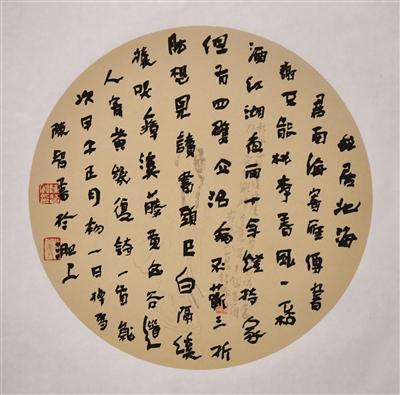 我居北海
君南海寄雁傳書
謝不能桃李春風一杯
酒江湖夜雨十年燈持家
但有四壁立治病不蘄三折
肱想見讀書頭已白隔溪
猿哭瘴溪藤黃山谷道
人寄黃幾復詩一首歲
次甲午正月初一日
陳書於湘上